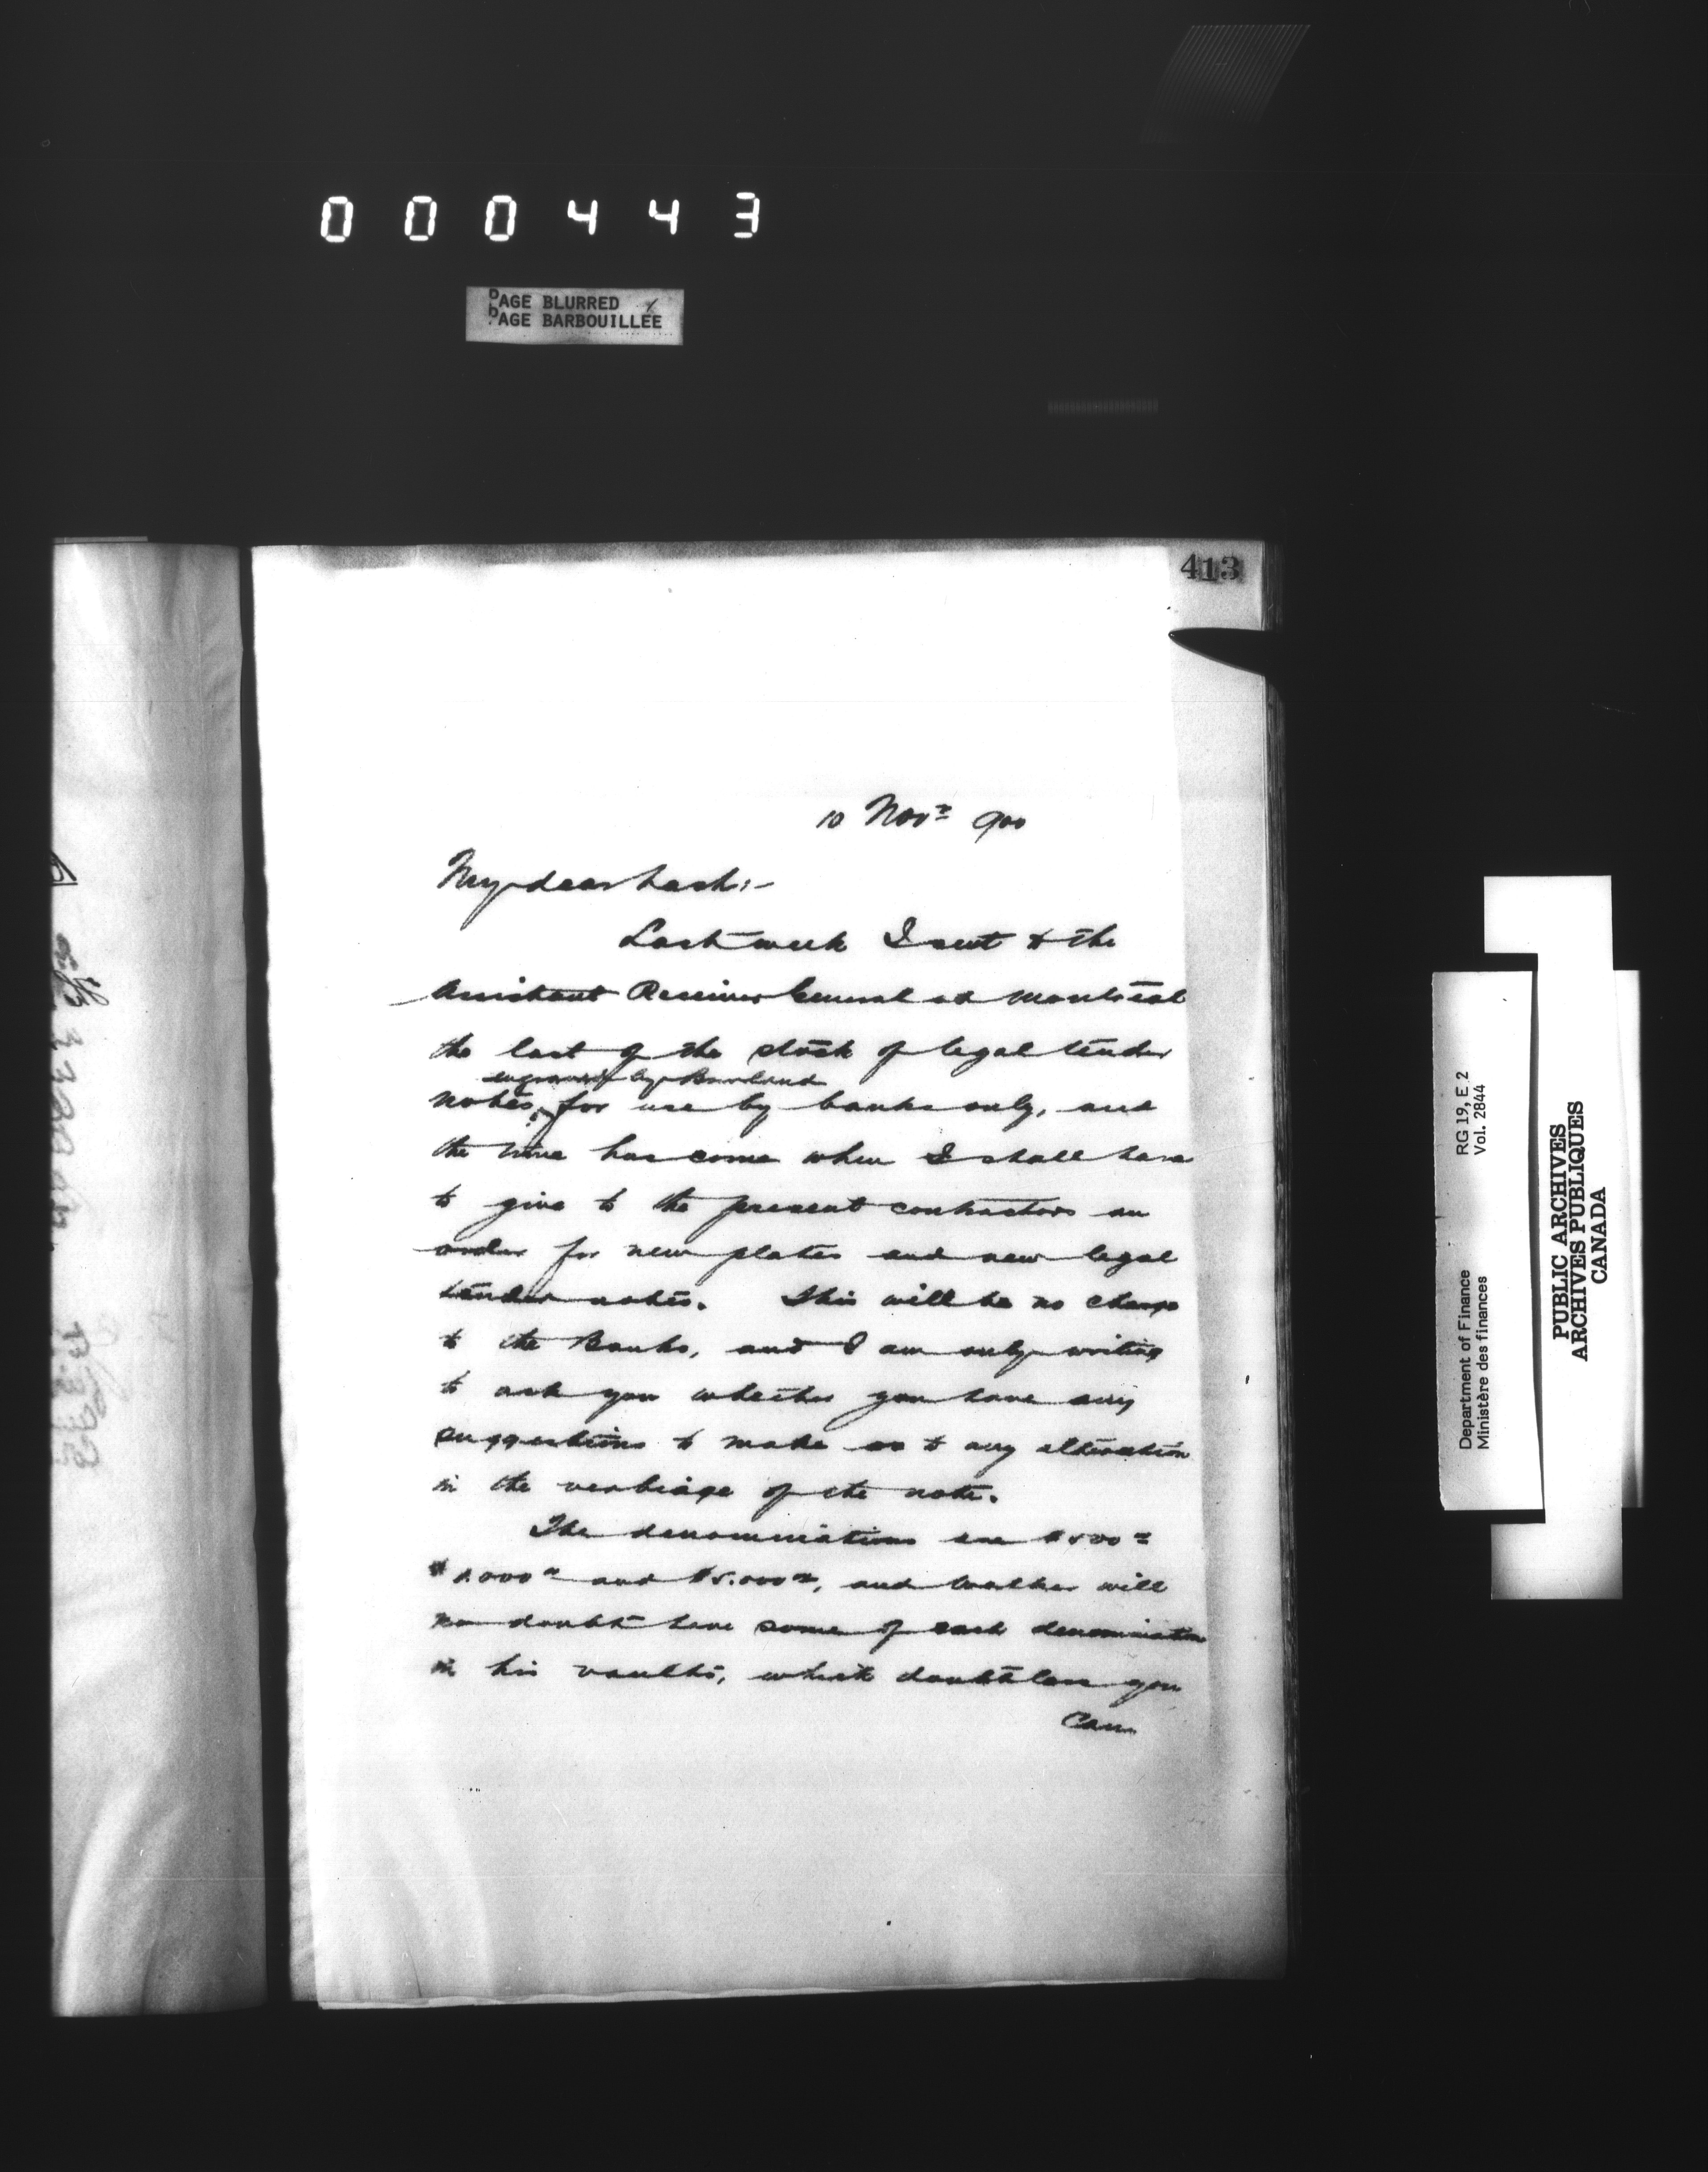 000443
PAGE BLURRED
PAGE BARBOUILLÉE
413
10 Nov.r 900
My dear Lash:-
Last week I sent to the
Assistant Receiver General at Montreal
the last of the stock of legal tender
engraved by Burland
notes, for use by banks only, and
the time has come when I shall have
to give to the present contractors an
order for new plates and new legal
tender notes. This will be no charge
to the Banks, and I am only writing
to ask you whether you have any
suggestions to make as to any alteration
in the verbiage of the note.
The denominations are $500
$1.000 and $5.000, and Walker will
no doubt have some of each denomination
in his vaults, which doubtless you
can
Department of Finance RG 19, E.2
Ministère des finances Vol. 2844
PUBLIC ARCHIVES
ARCHIVES PUBLIQUES
CANADA